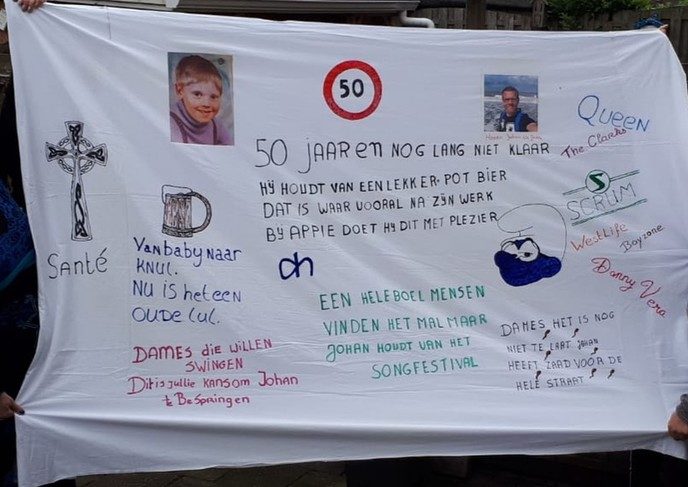 50
50 JAAR en NOG LANG NIET KLAAR
HIJ HOUDT VAN EEN LEKKER POT BIER
DAT IS WAAR VOORAL NA ZIJN WERK
BIJ APPIE DOET HIJ DIT MET PLEZIER
Queen
The Clarks
S
SCRUM
WestLife
Boyzone
Danny Vera
Santé
Van baby naar
KNUL.
NU is het een
OUDE LUL.
ah
DAMES die WILLEN
SWINGEN
Dit is jullie KANS OM Johan
te Bespringen
EEN HELEBOEL MENSEN
VINDEN HET MAL MAAR
JOHAN HOUDT VAN HET
SONGFESTIVAL
DAMES HET IS NOG
NIET TE LAAT JOHAN
HEEFT ZAAD VOOR DE
HELE STRAAT